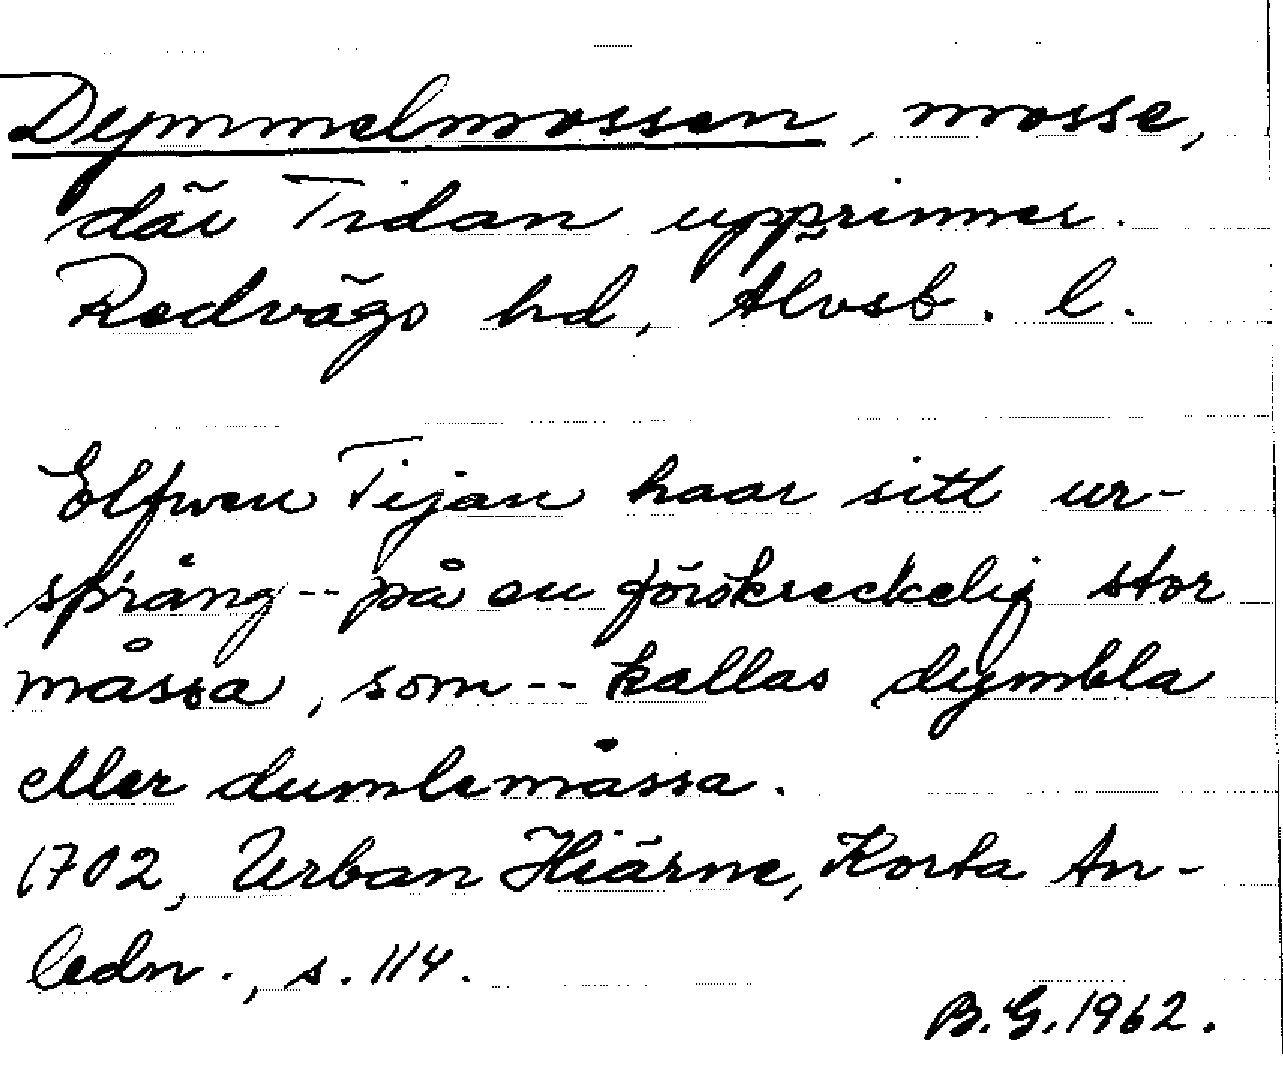 Dymmelmossen, mosse,
där Tidan upprinner.
Redvägs hd, Älvsb. l.
Elfwen Tijan haar sitt ur-
språng -- på en förskreckelig stor
måssa, som -- kallas dymbla
eller dumlemåssa.
1702, Urban Hiärne, Korta An-
ledn., s. 114.
B.G. 1962.